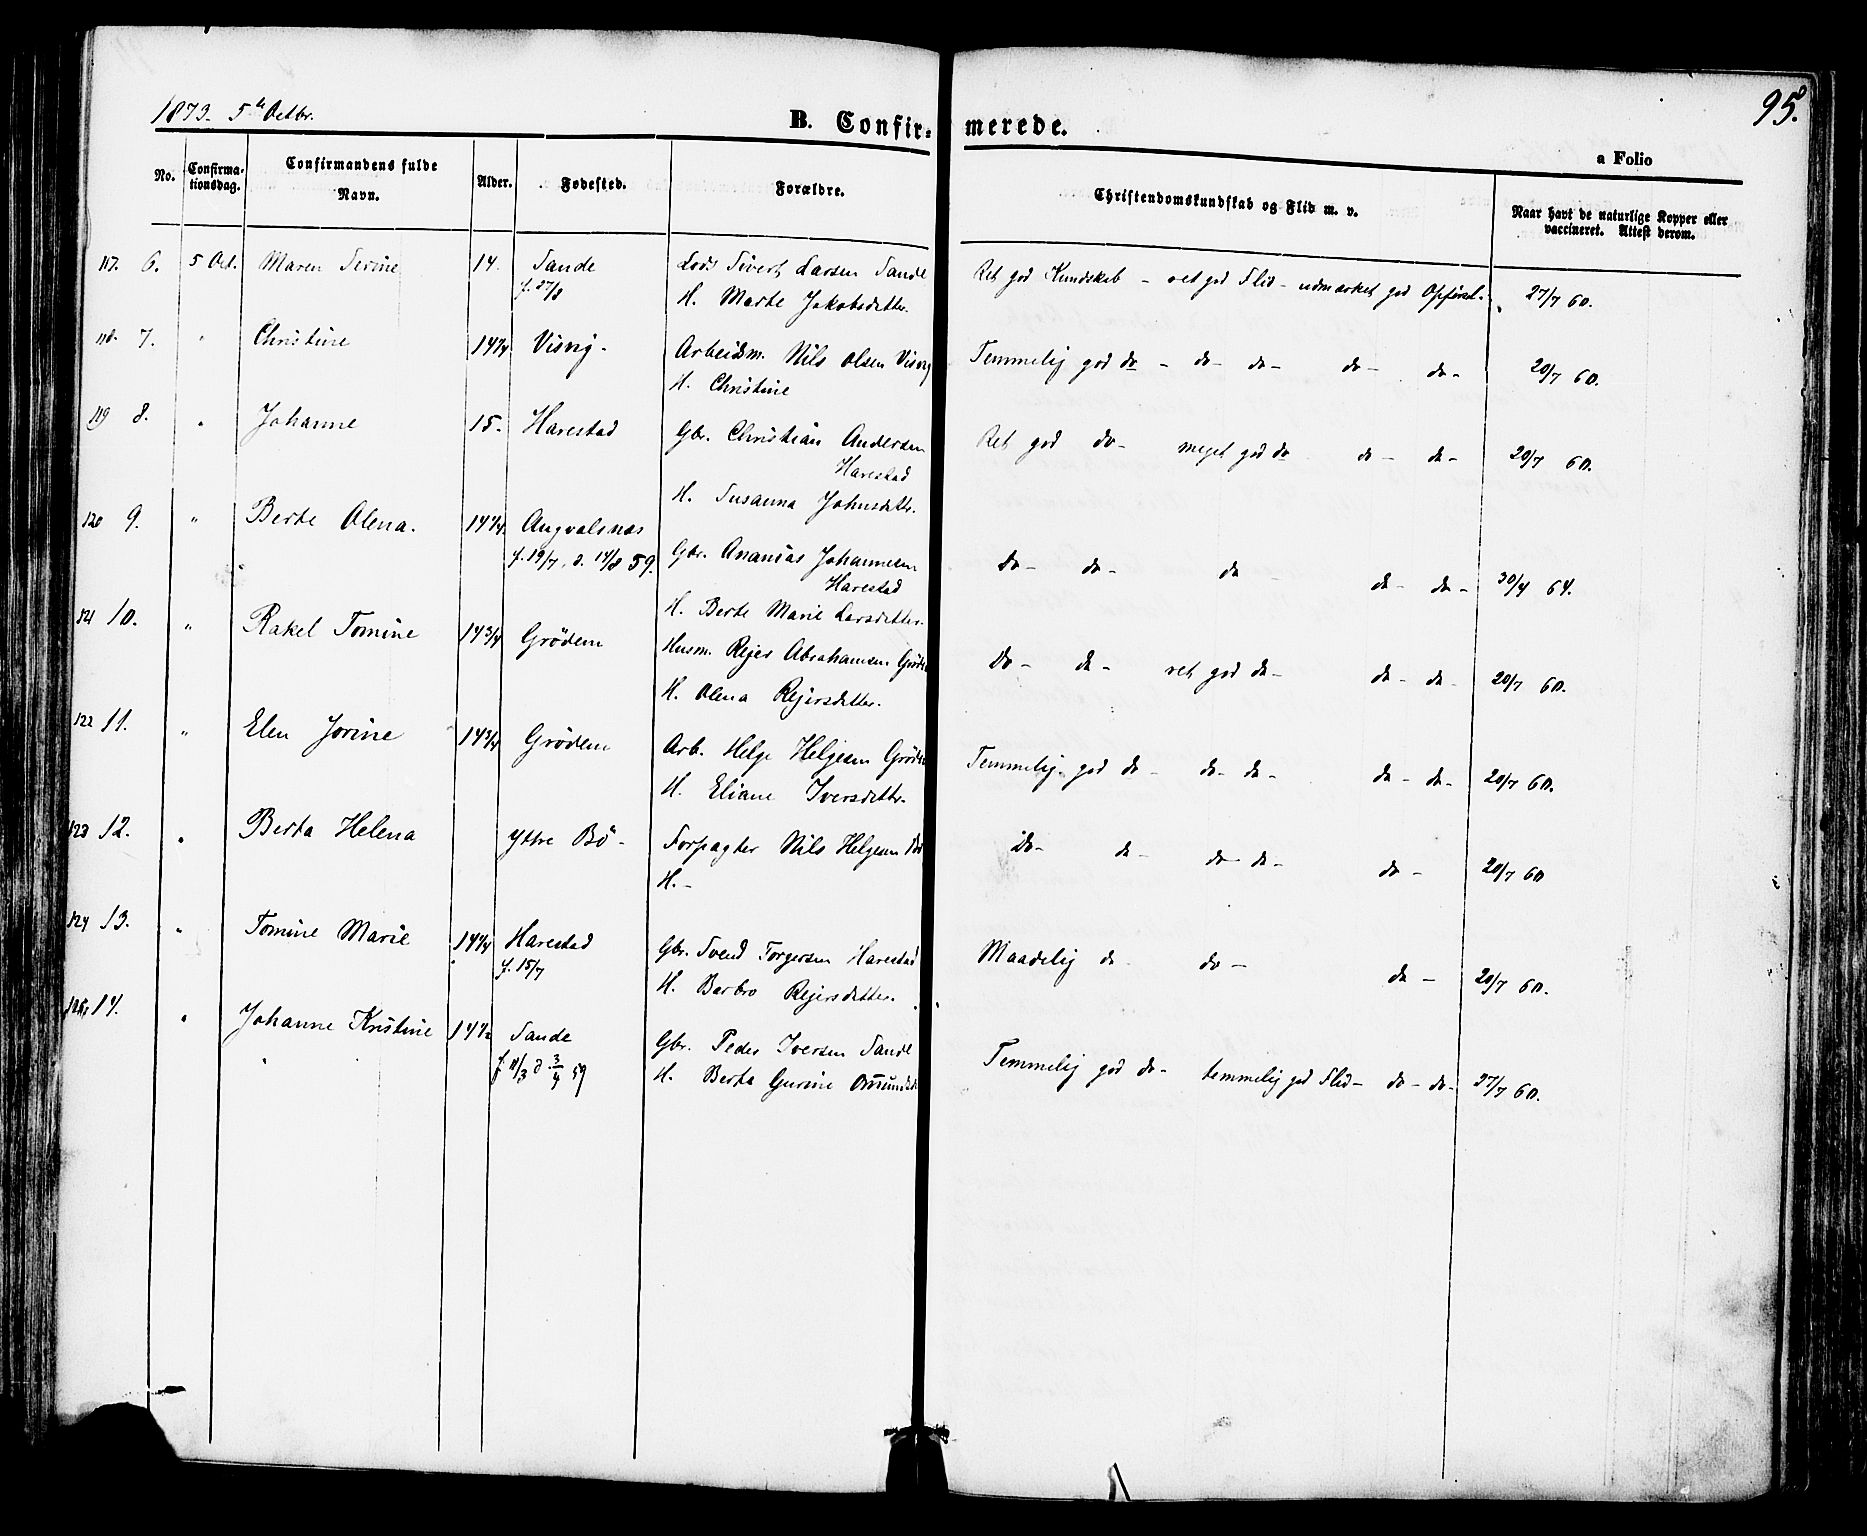 1873. 5te Octbr.
B. Confirmerede.
95.
a Folio
No.
Confirmationsdag.
Confirmandens fulde Navn.
Alder.
Fødested.
Forældre.
Christendomskundskab og Flid m. v.
Naar havt de naturlige Kopper eller vaccineret. Attest derom.
117. 6. 5 Oct. Maren Serine 14. Sande Lods Sivert Larsen Sande Ret god Kundskab - ret god Flid - udmærket god Opførsel. 27/7 60.
f. 27/8 H. Marte Jakobsdatter.
118. 7. " Christine 14 1/4 Visvig. Arbeidsm. Nils Olsen Visvig Temmelig god do - do - do - do - do - 20/7 60.
H. Christine
119 8. " Johanne 15. Harestad Gbr. Christian Andersen Ret god do - meget god do do - do - 20/7 60.
Harestad
H. Susanna Johnsdatter.
120 9. " Berte Olena. 14 1/4 Augvalsnæs Gbr. Ananias Johannesen Do - do - do - do - do - 30/4 64.
f. 19/7. d. 14/8 59. Harestad
H. Berte Marie Larsdatter.
121 10. " Rakel Tomine 14 3/4 Grødem Husm. Rejer Abrahamsen Grødem Do - do - ret god do - do - do - 20/7 60.
H. Olena Rejersdatter.
122 11. " Elen Jorine 14 3/4 Grødem Arb. Helge Helgesen Grødem Temmelig god do - do - do - do - do - 20/7 60.
H. Eliane Iversdatter.
123 12. " Berta Helena Yttre Bö - Forpagter Nils Helgesen Bö Do - do - do - do - do - 20/7 60
H. -
124 13. " Tomine Marie 14 1/4 Harestad Gbr. Svend Torgersen Harestad Maadelig do - do - do - 20/7 60.
f. 15/7 H. Barbro Rejersdatter.
125 14. " Johanne Kristine 14 1/2 Sande Gbr. Peder Iversen Sande Temmelig god do - temmelig god Flid - do - do - 27/7 60.
f. 11/3 d. 3/4 59 H. Berta Gurine